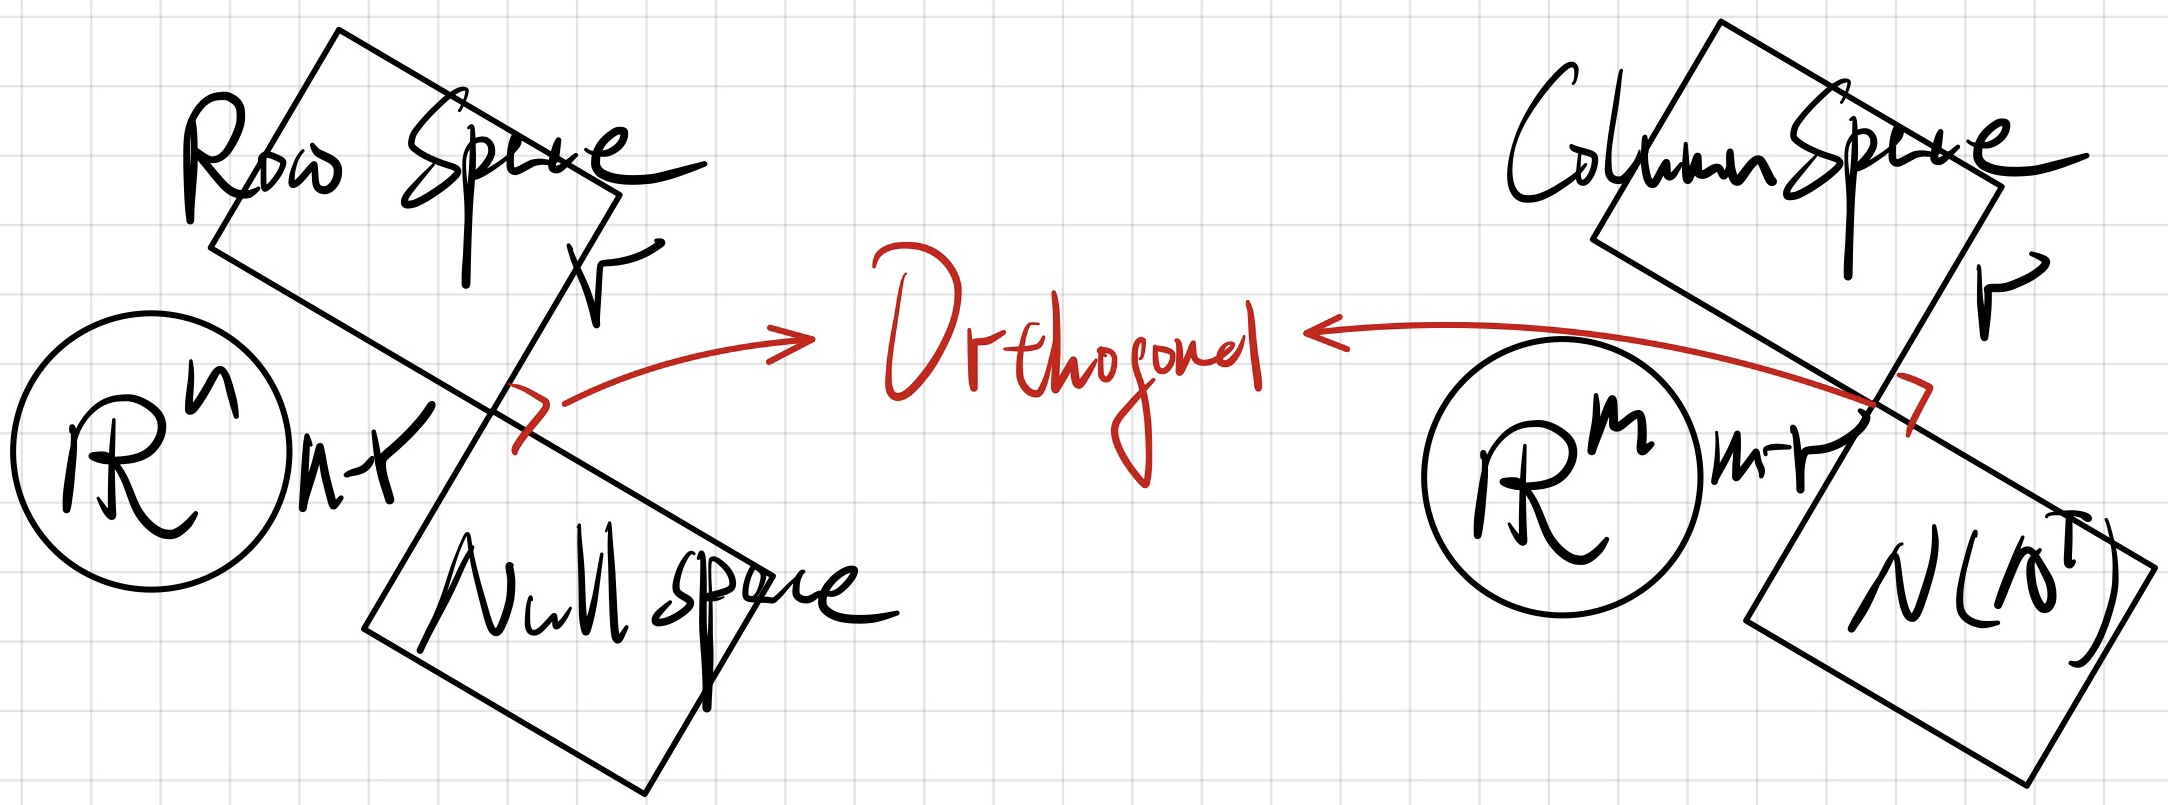 Row Space
r
R^n
n-r
Null space
Orthogonal
Column Space
r
R^m
m-r
N(A^T)